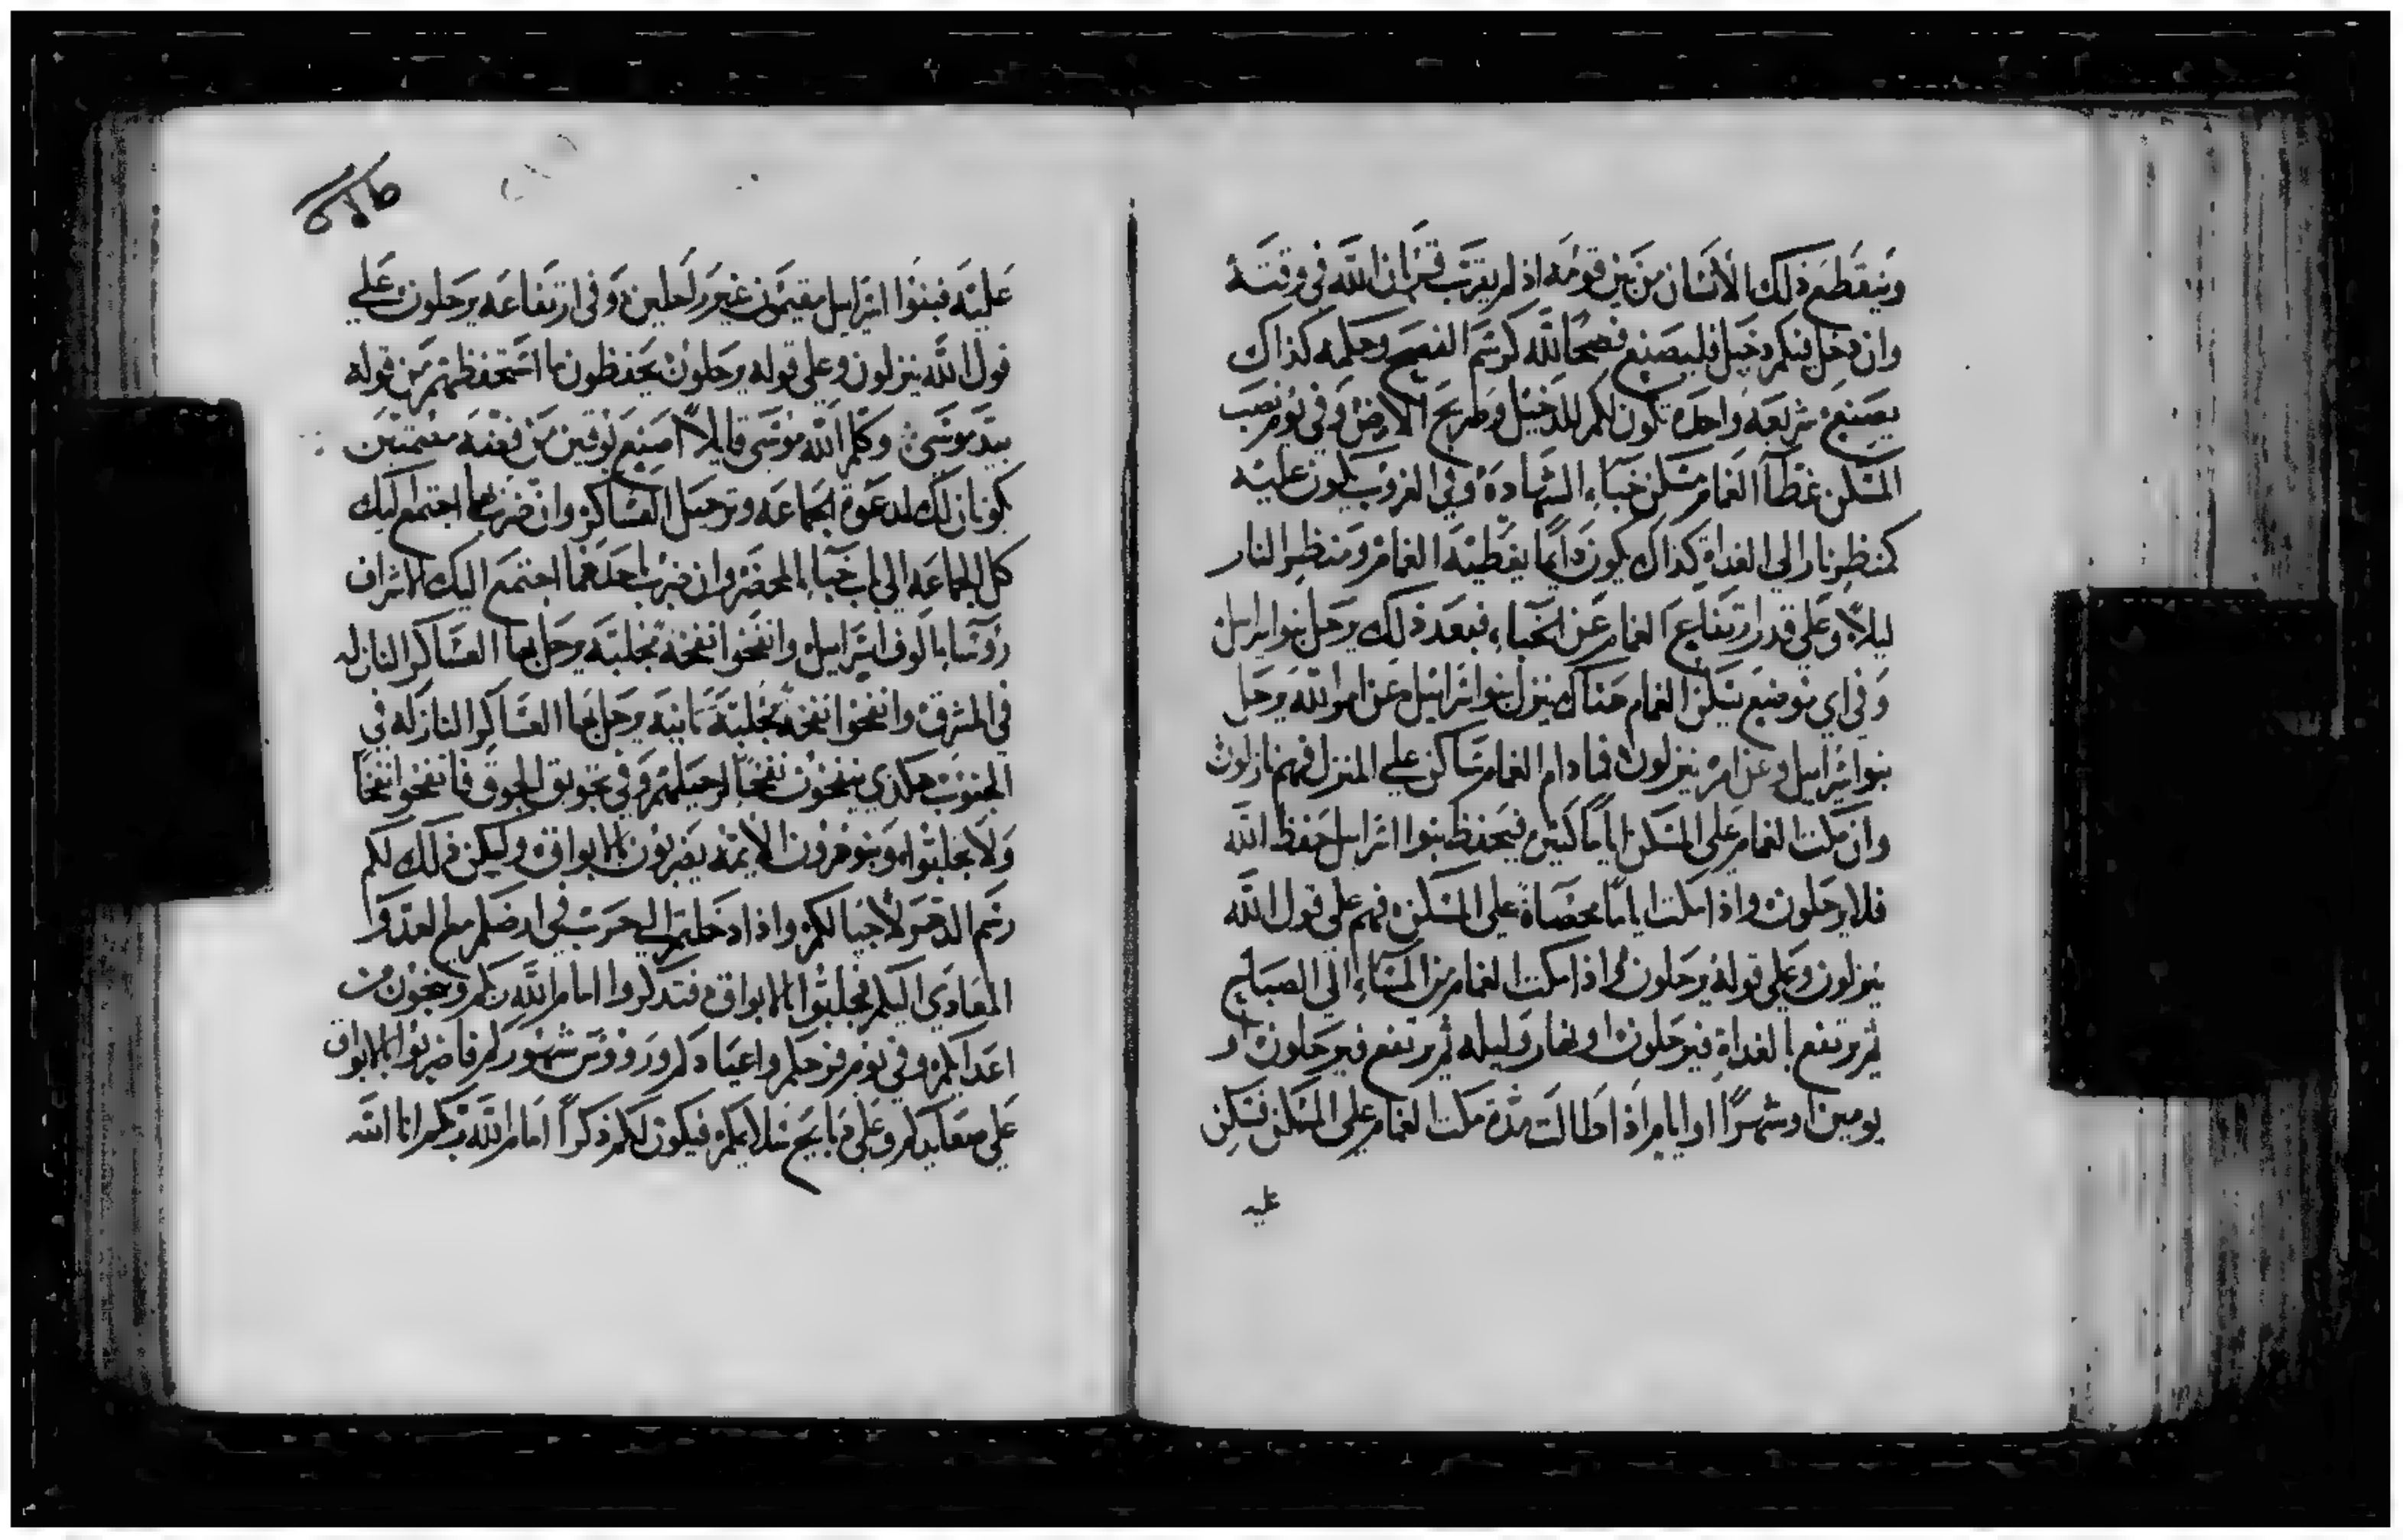 وينقطع ذلك الانسان من بين قومه اذ لم يقرب قربان الله في وقته
وان دخل فيكم دخيل فليصنع فصحا لله كرسم الفصح وحكمه كذاك
يصنع شريعه واحده تكون لكم للدخيل وصريح الارض وفي يوم نصب
المسكن غطا الغمام مسكن خباء الشهاده وفي الغروب يكون عليه
كمنظر نار الي الغداة كذاك يكون دايما يغطيه الغمام ومنظر النار
ليلا وعلي قدر ارتفاع الغمام عن الخباء فبعد ذلك يرحل بنوا اسراييل
وفي اي موضع يسكن الغمام هناك ينزل بنوا اسراييل عن امر الله يرحل
بنوا اسراييل وعن امره ينزلون فما دام الغمام ساكن علي المنزل فهم نازلون
وان مكث الغمام علي المسكن اياما كثيره فيحفظ بنوا اسراييل حفظ الله
فلا يرحلون واذا مكث اياما محصاة علي المسكن فهم علي قول الله
ينزلون وعلي قوله يرحلون واذا مكث الغمام من المساء الي الصباح
ثم يرتفع بالغداة فيرحلون او نهار وليله ثم يرتفع فيرحلون او
يومين او شهرا او ايام اذا طالت مدة مكث الغمام علي المسكن فسكن
عليه
عليه فبنوا اسراييل مقيمون غير راحلين وفي ارتفاعه يرحلون علي
قول الله ينزلون وعلي قوله يرحلون يحفظون ما استحفظهم من قوله
بيد موسي وكلم الله موسي قايلا اصنع بوقين من فضه مصمتين
يكونان لك لدعوة الجماعه وترحيل العساكر وان ضرب بهما اجتمع اليك
كل الجماعه الي باب خباء المحضر وان ضرب باحدهما اجتمع اليك الاشراف
رؤسا الوف اسراييل وانفخوا نفخة بجلبه يرحل بها العساكر النازله
في المشرق وانفخوا نفخة بجلبة ثانيه يرحل بها العساكر النازله في
الجنوب هكذي ينفخون نفخا لرحيلهم وفي تجويق الجوق فانفخوا نفخا
ولا تجلبوا وبنو هرون الايمه يضربون بالابواق وليكن ذلك لكم
رسم الدهر لاجيالكم واذا دخلتم الي حرب في ارضكم مع العدوا
المعادي اليكم فجلبوا بالابواق فتذكروا امام الله ربكم وتنجون من
اعدايكم وفي يوم فرحكم واعيادكم ورووس شهوركم فاضربوا بالابواق
علي صعايدكم وعلي دبايح سلايمكم فيكون لكم ذكرا امام الله ربكم انا الله